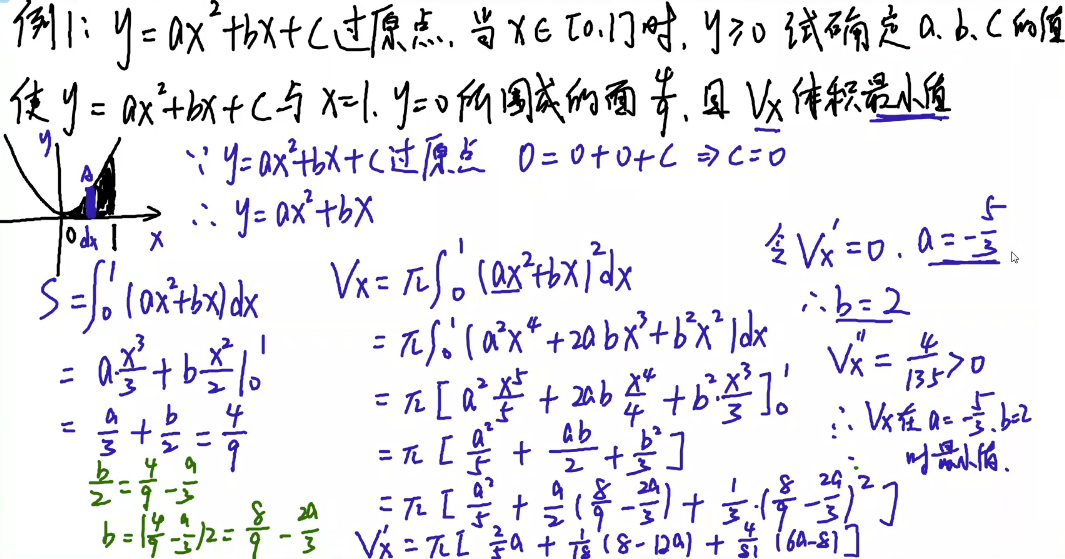 例1: y=ax²+bx+c过原点. 当x∈[0.1]时. y≥0 试确定a.b.c的值
使 y=ax²+bx+c与x=1. y=0所围成的面4/9. 且 Vx体积最小值
y
A
0 dx 1 x
∵ y=ax²+bx+c过原点 0=0+0+c ⇒c=0
∴ y=ax²+bx
S=∫₀¹(ax²+bx)dx
= a x³/3 + b x²/2 |₀¹
= a/3 + b/2 = 4/9
b/2 = 4/9 - a/3
b=(4/9 - a/3)2 = 8/9 - 2a/3
Vx=π∫₀¹(ax²+bx)²dx
=π∫₀¹(a²x⁴+2abx³+b²x²)dx
=π[a² x⁵/5 + 2ab x⁴/4 + b²·x³/3]₀¹
=π[a²/5 + ab/2 + b²/3]
=π[a²/5 + a/2(8/9 - 2a/3) + 1/3·(8/9 - 2a/3)²]
Vx'=π[2/5a + 1/18(8-12a) + 4/81(6a-8)]
令Vx'=0. a=-5/3
∴b=2
Vx''=4/135>0
∴Vx在a=-5/3.b=2
时最小值.